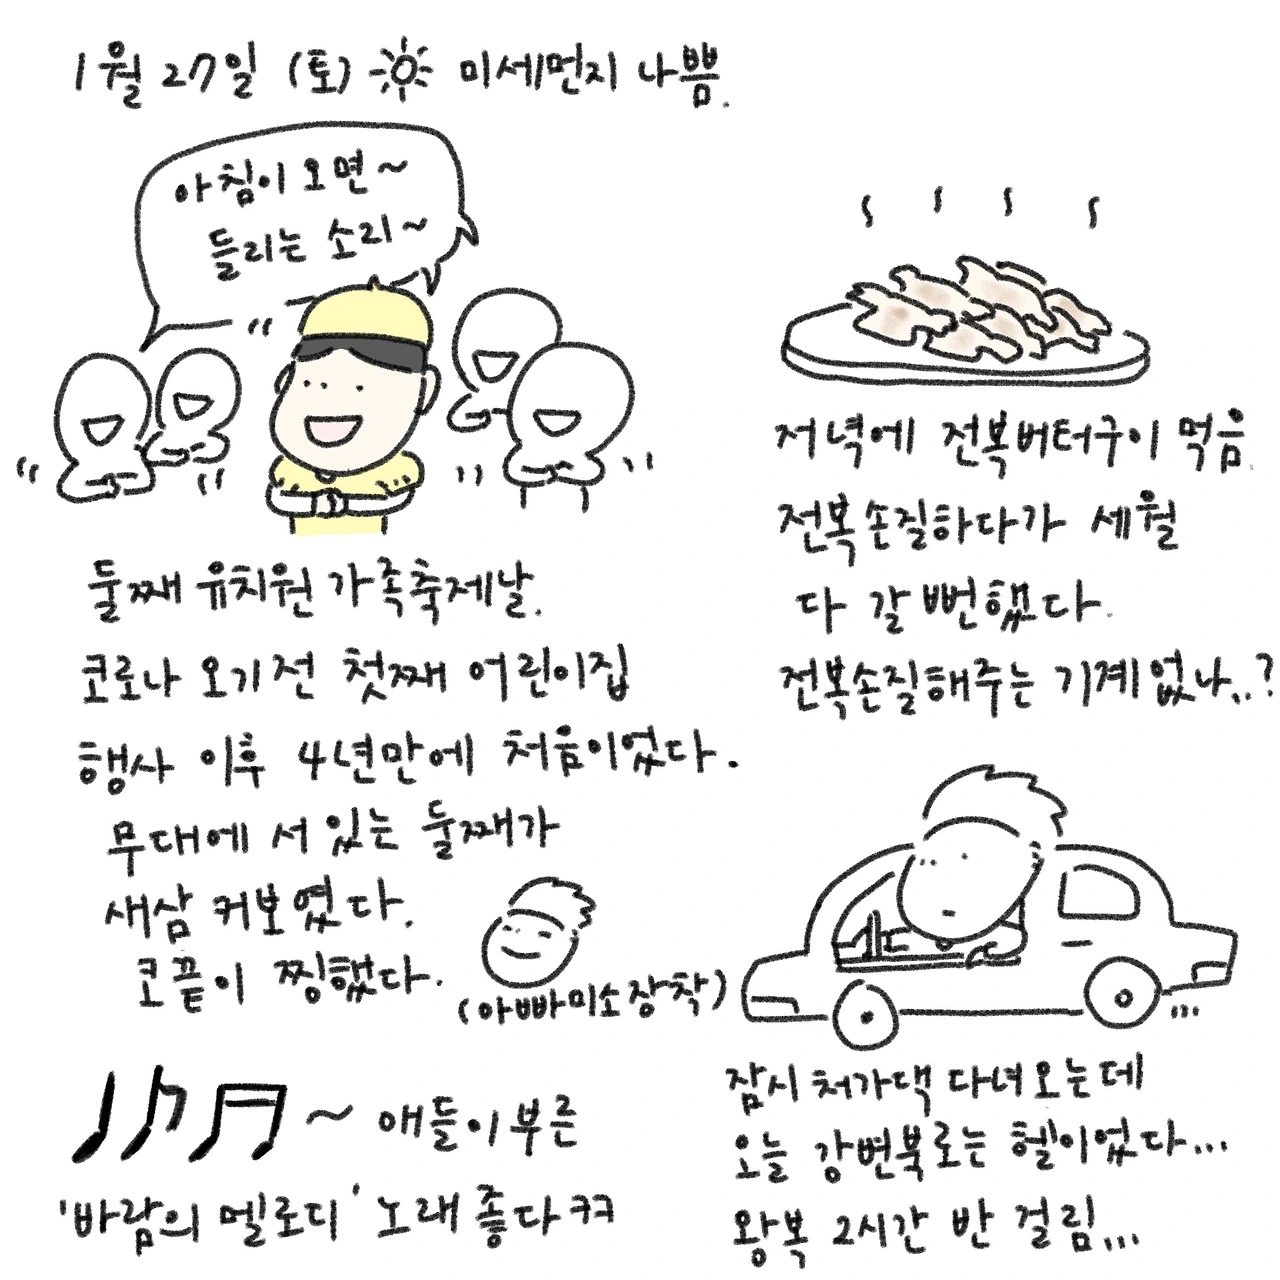 1월 27일 (토) 미세먼지 나쁨.
아침이 오면~
들리는 소리~
둘째 유치원 가족축제날.
코로나 오기 전 첫째 어린이집
행사 이후 4년만에 처음이었다.
무대에 서 있는 둘째가
새삼 커보였다.
코끝이 찡했다.
(아빠미소장착)
~ 애들이 부른
'바람의 멜로디' 노래 좋다 ㅋㅋ
저녁에 전복버터구이 먹음.
전복손질하다가 세월
다 갈 뻔했다.
전복손질해주는 기계 없나..?
잠시 처가댁 다녀오는데
오늘 강변북로는 헬이었다...
왕복 2시간 반 걸림...